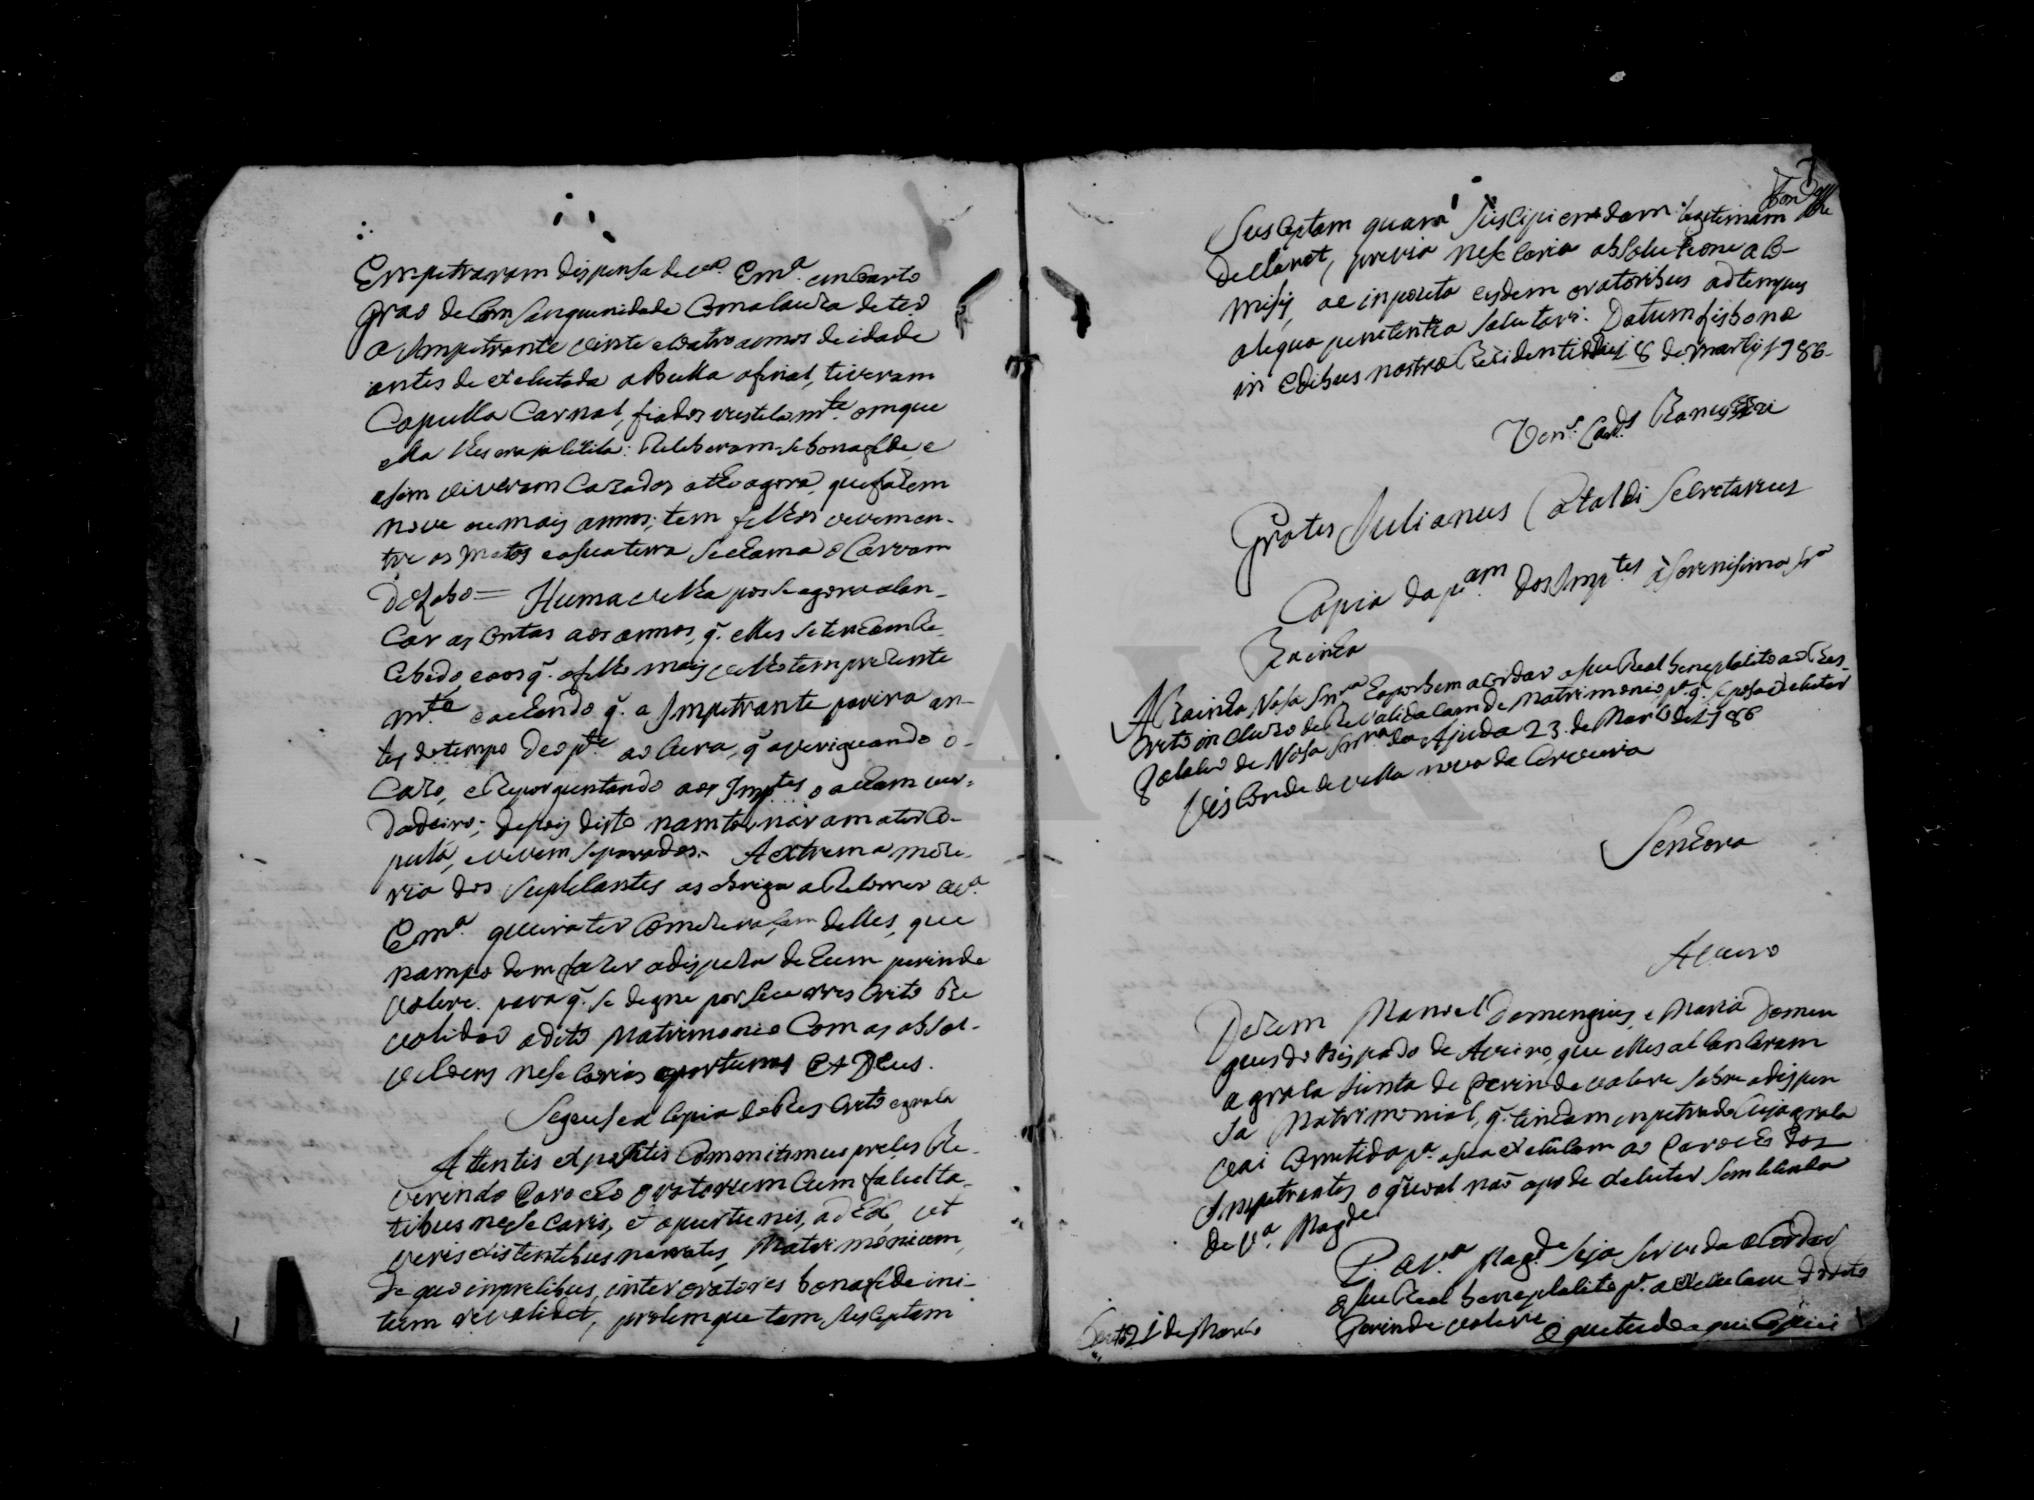 Empetraram dispensa de Va. Emª. em coarto
grao de Comsanguinidade Com a lauza de ter
a Impetrante vinte e coatro annos de idade
antes de exelutada a Bulla afinal, tiveram
Copulla Carnal, fiados nesta mte. em que
ella lhes era
asim viveram Cazados athe agora, que fazem
nove ou mais annos; tem filhos vivem en-
tre os matos e a sua terra se chama o Carvam
do Lobo = Huma velha pos se agora a lan-
car as Contas aos annos, q. elles se tem
Cebido e aos q. o filho mais velho tem prezente
mte. e achando q. a Impetrante parira an-
tes do tempo deo pte. ao Cura, q averiguando o
Cazo, e Reporguntando aos Imptes o acham ver-
dadeiro; depois disto nam tornaram a ter Co-
pula, e vivem separados. A extrema mize-
ria dos Suplicantes os obriga a Relorrer a Va.
Emª. queira ter Comizerasam delles, que
nam podem fazer a dispeza de hum perinde
valere. para q. se digne por seu resCrito Re
validar a dito Matrimonio Com as absol-
viCoens neseCarias oportunas Et Deus.
Segue se a Copia do ResCrito e graca
Attentis expositis Commitimus preces Re-
verendo Parocho oratorum Cum faculta-
tibus neseCaris, et oportunis, ad Ed ut
veris existentibus narratis, Matrimonium,
de quo in precibus, inter oratores bona fide ini-
tum revalidet, prolemque tam susCeptam
SusCeptam quam SusCipiendam legitimam
declaret, previa neseCaria absolutione a Co-
misis, ac inposita eisdem oratoribus ad tempus
aliqua penitentia salutari. Datum Lisbonæ
in Edibus nostræ Rezidentiæ die 18 de martij 1786.
Vens. Cards. Ranuzzi
Gratis Julianus Cataldi Secretarius
Copia da pam. dos Imptes á Serenisima Sra
Rainha
A Rainha Nosa Snra Ha por bem acordar o seu Real beneplalito ao Res-
Crito incluzo de Revalidacam de Matrimonio pa. q. se posa exelutar
Palacio de Nosa Snra da Ajuda 23 de Marco de 1786
VisConde de villa nova da Cerveira
Senhora
Aveiro
Dizem Manoel Domingues, e Maria Domin
gues do Bispado de Aveiro, que elles alCanCaram
a graca junta de Perinde valere sobre a dispen
sa Matrimonial, q. tinham inpetrado Cuja graca
vai Cometida pa. a sua exeCuCam ao Parocho dos
Impetrantes o qual não a pode exelutar sem liCenca
de Va. Magde
P. a Va. Magde seja servida aCordar
o seu Real beneplalito pa. a exeCuCam do dito
Perinde valere
O que tudo aqui Copiei
21 de Marco